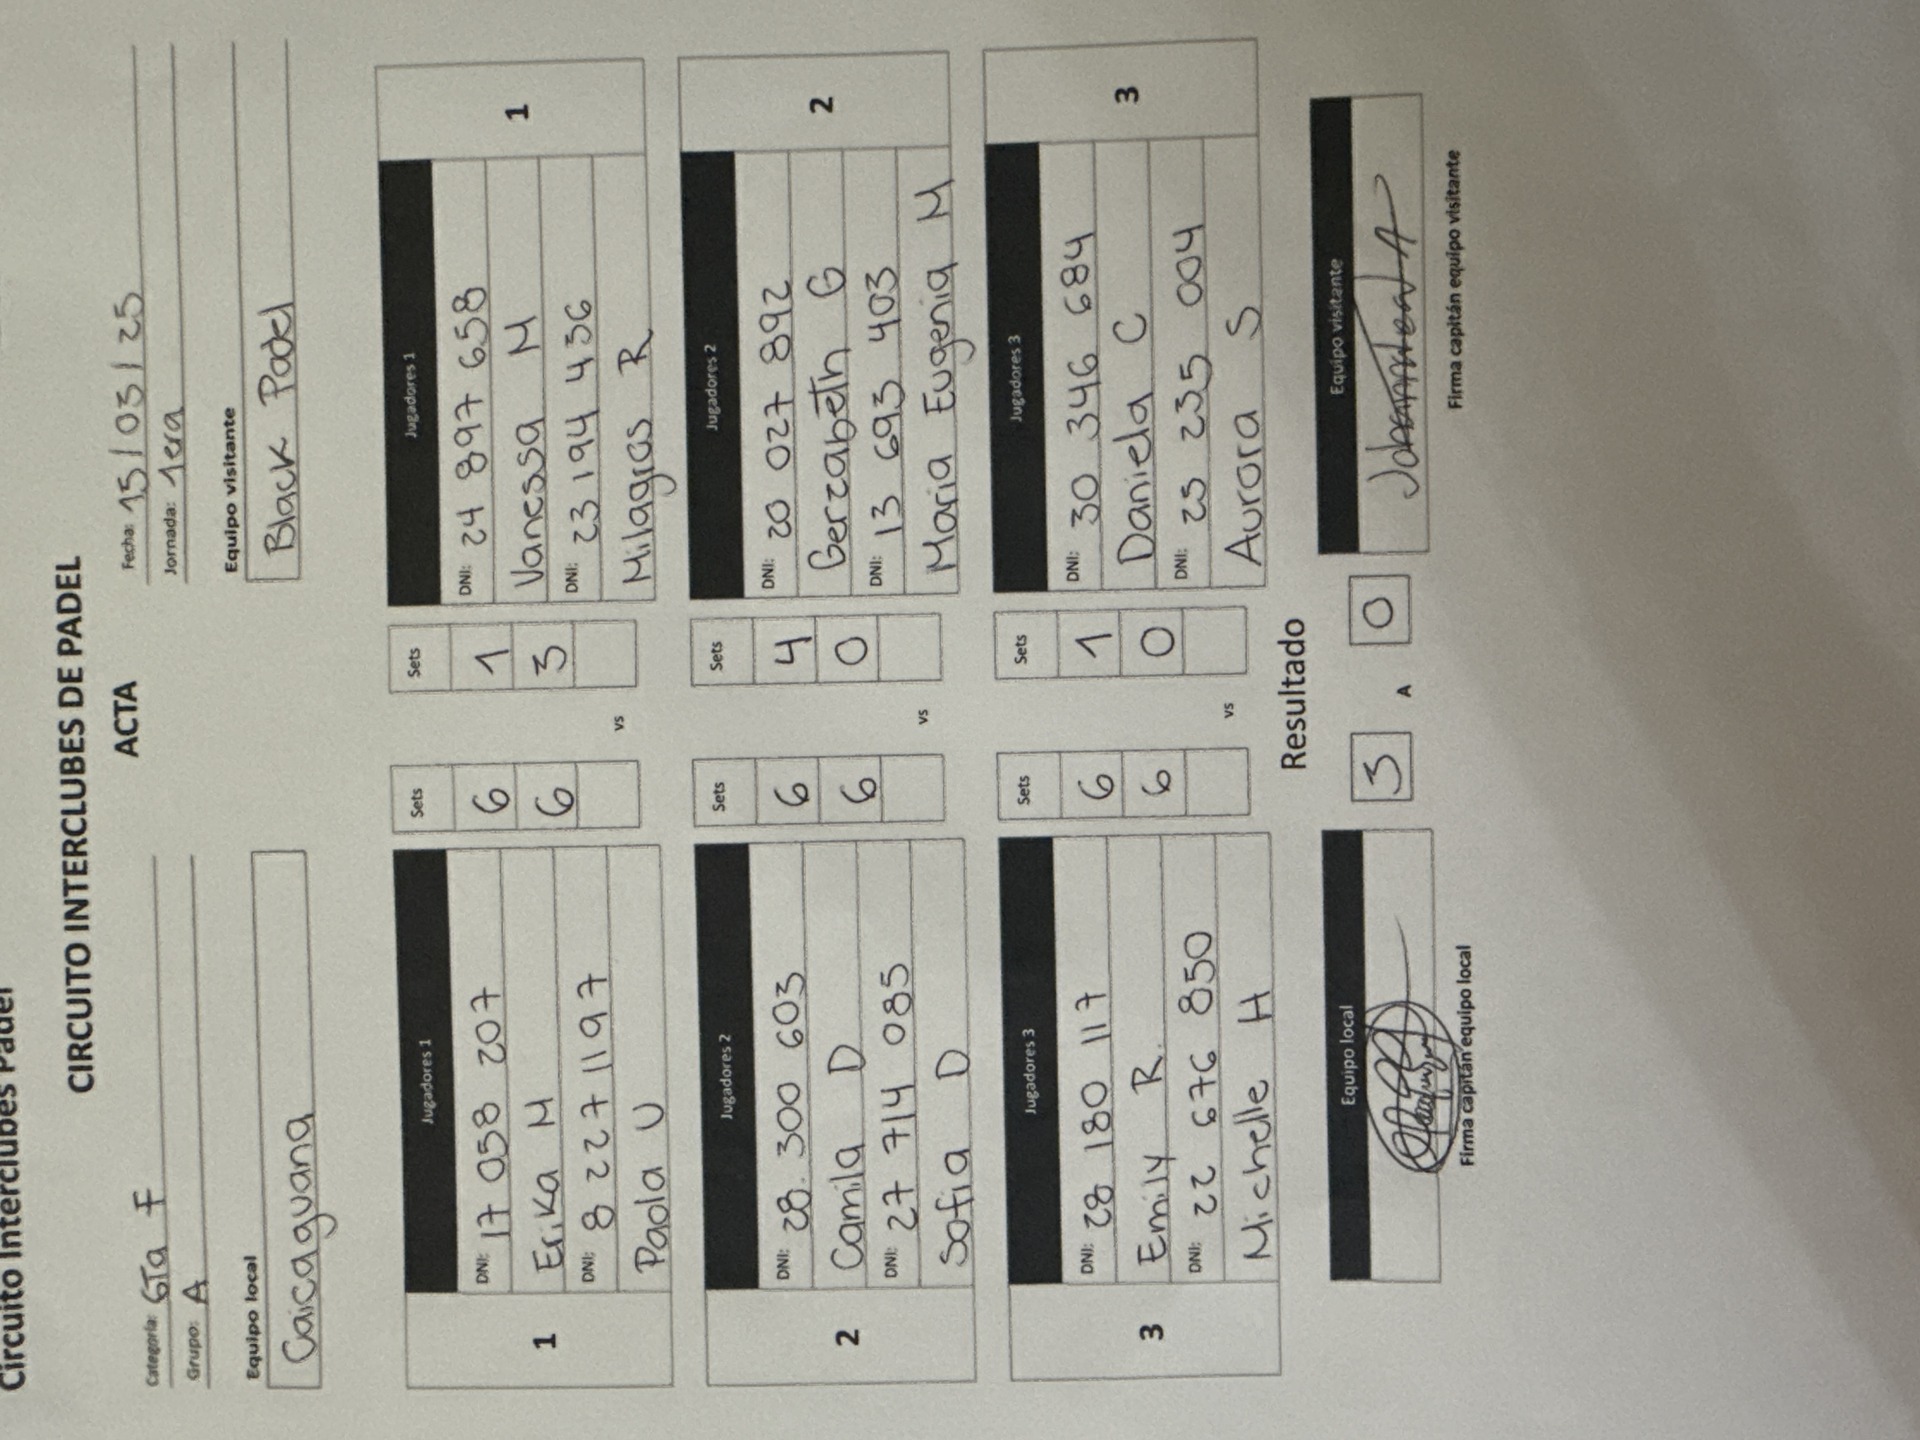 Circuito Interclubes Padel
CIRCUITO INTERCLUBES DE PADEL
ACTA
Categoría: 6Ta F
Fecha: 15/03/25
Grupo: A
Jornada: 1era
Equipo local
Equipo visitante
Caicaguana
Black Padel
Jugadores 1
Sets
Sets
Jugadores 1
1
DNI: 17 058 207
6
1
DNI: 24 897 658
1
Erika M
6
3
Vanessa M
DNI: 8 227 1197
DNI: 23 194 436
Paola U
vs
Milagros R
Jugadores 2
Sets
Sets
Jugadores 2
2
DNI: 28.300 603
6
4
DNI: 20 027 892
2
Camila D
6
0
Gerzabeth G
DNI: 27 714 085
DNI: 13 693 403
Sofia D
vs
Maria Eugenia M
Jugadores 3
Sets
Sets
Jugadores 3
3
DNI: 28 180 117
6
1
DNI: 30 346 684
3
Emily R.
6
0
Daniela C
DNI: 22 676 850
DNI: 25 235 004
Michelle H
vs
Aurora S
Resultado
Equipo local
Equipo visitante
3 A 0
Firma capitán equipo local
Firma capitán equipo visitante